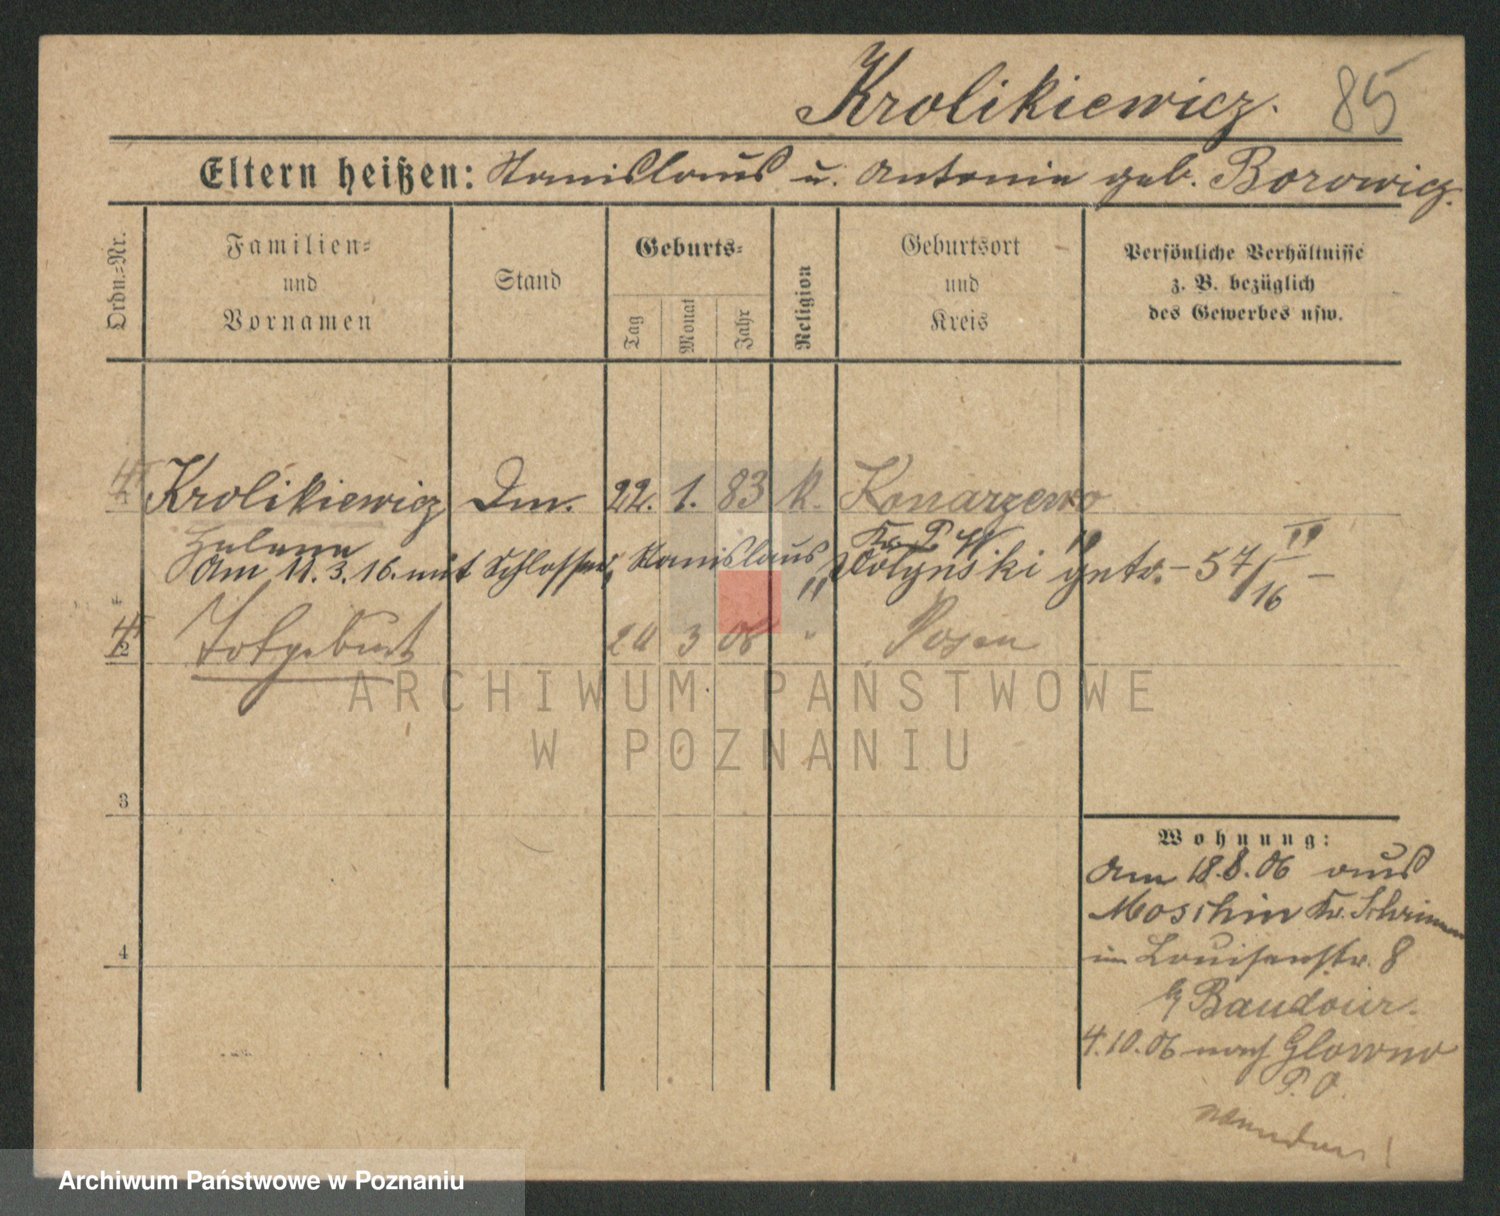 Krolikiewicz. 85
Eltern heißen: Stanislaus u. Antonie geb. Borowicz.
Ordn.-Nr.
Familien-
und
Vornamen
Stand
Geburts-
Tag
Monat
Jahr
Religion
Geburtsort
und
Kreis
Persönliche Verhältnisse
z. B. bezüglich
des Gewerbes usw.
Krolikiewicz Dm. 22. 1. 83 k. Konarzewo
Helene Kr. P. W.
Am 11.3.16. mit Schlosser, Stanislaus Wolynski getr. - 57/16 -
2 Totgeburt 24 3 06 " Posen
3
4
Wohnung:
Am 18.8.06 aus
Moschin Kr. Schrimm
in Louisenstr. 8
b/ Baudouir.
4.10.06 nach Glowno
P. O.
wenden!
ARCHIWUM PAŃSTWOWE
W POZNANIU
Archiwum Państwowe w Poznaniu